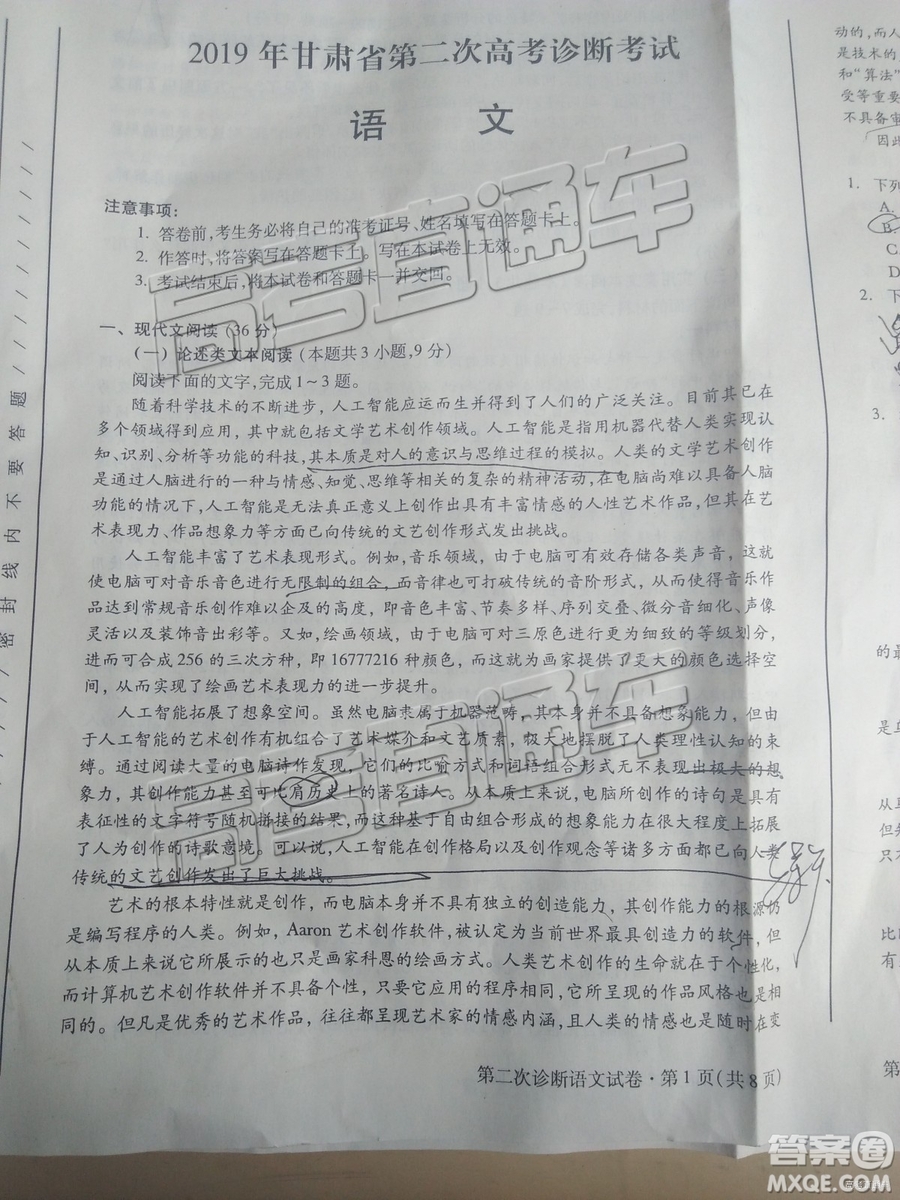 2019 年甘肃省第二次高考诊断考试
语 文
注意事项:
1. 答卷前,考生务必将自己的准考证号、姓名填写在答题卡上。
2. 作答时,将答案写在答题卡上。写在本试卷上无效。
3. 考试结束后,将本试卷和答题卡一并交回。
一、现代文阅读(36 分)
(一)论述类文本阅读(本题共 3 小题,9 分)
阅读下面的文字,完成 1~3 题。
随着科学技术的不断进步,人工智能应运而生并得到了人们的广泛关注。目前其已在
多个领域得到应用,其中就包括文学艺术创作领域。人工智能是指用机器代替人类实现认
知、识别、分析等功能的科技,其本质是对人的意识与思维过程的模拟。人类的文学艺术创作
是通过人脑进行的一种与情感、知觉、思维等相关的复杂的精神活动,在电脑尚难以具备人脑
功能的情况下,人工智能是无法真正意义上创作出具有丰富情感的人性艺术作品,但其在艺
术表现力、作品想象力等方面已向传统的文艺创作形式发出挑战。
人工智能丰富了艺术表现形式。例如,音乐领域,由于电脑可有效存储各类声音,这就
使电脑可对音乐音色进行无限制的组合,而音律也可打破传统的音阶形式,从而使得音乐作
品达到常规音乐创作难以企及的高度,即音色丰富、节奏多样、序列交叠、微分音细化、声像
灵活以及装饰音出彩等。又如,绘画领域,由于电脑可对三原色进行更为细致的等级划分,
进而可合成 256 的三次方种,即 16777216 种颜色,而这为画家提供了更大的颜色选择空
间,从而实现了绘画艺术表现力的进一步提升。
人工智能拓展了想象空间。虽然电脑隶属于机器范畴,其本身并不具备想象能力,但由
于人工智能的艺术创作有机组合了艺术媒介和文艺质素,极大地摆脱了人类理性认知的束
缚。通过阅读大量的电脑诗作发现,它们的比喻方式和词语组合形式无不表现出极大的想
象力,其创作能力甚至可比肩历史上的著名诗人。从本质上来说,电脑所创作的诗句是具有
表征性的文字符号随机拼接的结果,而这种基于自由组合形成的想象能力在很大程度上拓展
了人为创作的诗歌意境。可以说,人工智能在创作格局以及创作观念等诸多方面都已向人类
传统的文艺创作发出了巨大挑战。
艺术的根本特性就是创作,而电脑本身并不具有独立的创造能力,其创作能力的根源仍
是编写程序的人类。例如,Aaron 艺术创作软件,被认定为当前世界最具创造力的软件,但
从本质上来说它所展示的也只是画家科恩的绘画方式。人类艺术创作的生命就在于个性化,
而计算机艺术创作软件并不具备个性,只要它应用的程序相同,它所呈现的作品风格也是相
同的。但凡是优秀的艺术作品,往往都呈现艺术家的情感内涵,且人类的情感也是随时在变
第二次诊断语文试卷·第 1 页(共 8 页)
密 封 线 内 不 要 答 题
动的,而人
是技术的
和“算法”
受等重要
不具备审
因此
1. 下列
A.
B
C
D
2. 下
3.
的最
是
从
但知
只
比
有
第
高考直通车
高考直通车
高考直通车
答案圈
MXQE.COM